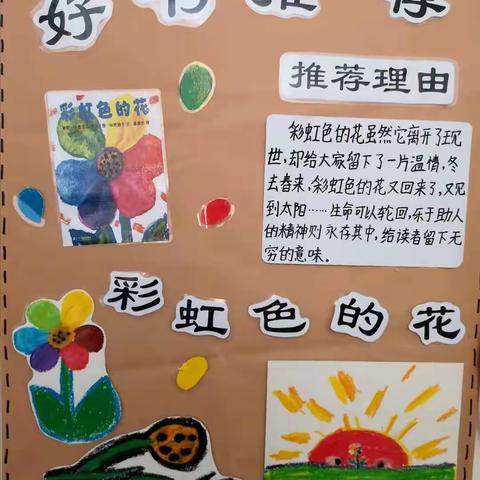 好书推荐
推荐理由
彩虹色的花
彩虹色的花虽然它离开了现
世,却给大家留下了一片温情,冬
去春来,彩虹色的花又回来了,又见
到太阳……生命可以轮回,乐于助人
的精神则永存其中,给读者留下无
穷的意味。
彩虹色的花